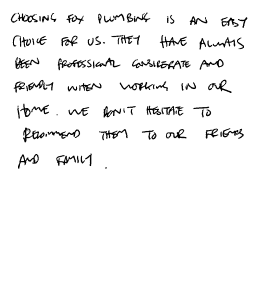 CHOOSING FOX PLUMBING IS AN EASY
CHOICE FOR US. THEY HAVE ALWAYS
BEEN PROFESSIONAL CONSIDERATE AND
FRIENDLY WHEN WORKING IN OUR
HOME. WE DON'T HESITATE TO
RECOMMEND THEM TO OUR FRIENDS
AND FAMILY.